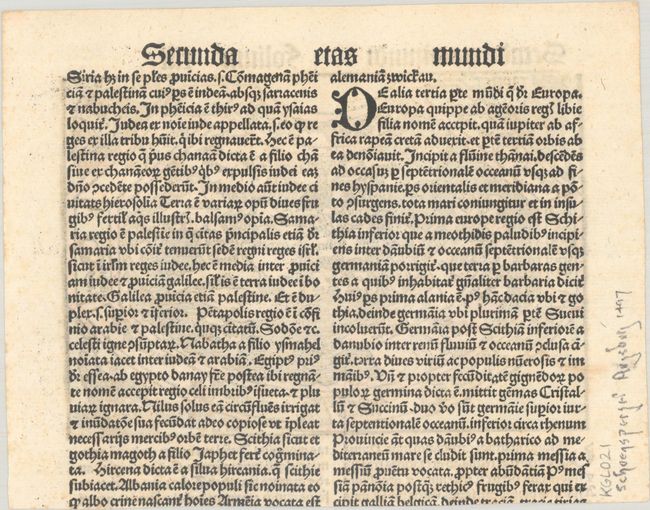 Secunda etas mundi
Siria hȝ in se p̄les ꝓuicias. s. Cōmagenā phēi
ciā & palestinā cui⁹ ps ē indeā. absqȝ sarracenis
& nabucheis. In phēicia ē thir⁹ ad quā ysaias
loquit᷑. Judea ex noīe iude appellata. s. eo ꝙ re
ges ex illa tribu hūit. q̄ ibi regnauer̄t. Hec ē pa
lestina regio q̄ pus chanaā dicta ē a filio chā
siue ex chanaeoꝝ gētib⁹ qb⁹ expulsis iudei eaȝ
dn̄o ɔcedēte possederūt. In medio aūt iudee ci
uitas hierosolia Terra ē variaꝝ opū diues fru
gib⁹ fertil' aqs illustr'. balsam' opia. Sama
ria regio ē palestīe in q̄ citas pncipalis etiā dr̄
samaria vbi cōit᷑ tenuerūt sedē regni reges isrl'.
sicut ī irl'm reges iudee. hec ē media inter ꝓuici
am iudee & ꝓuiciā galilee. sil'is ē terra iudee ī bo
nitate. Galilea ꝓuicia etiā palestine. Et ē du
plex. s. supior & īferior. Pētapolis regio ē ī cōfi
nio arabie & palestine. quiqȝ citatū. Sodōe & c.
celesti igne ɔsūptaꝝ. Nabatha a filio ysmahel
noīata iacet inter iudeā & arabiā. Egipt⁹ pri⁹
dr̄ essea. ab egypto danay fr̄e postea ibi regnā
te nomē accepit regio celi imbrib⁹ īsueta. & plu
uiaꝝ ignara. Nilus solus eā circūflués irrigat
& inūdatōe sua fecūdat adeo copiose vt īpleat
necessarijs mercib⁹ orbē terre. Scithia sicut et
gothia magoth a filio Japhet fert᷑ cogn̄mina
ta. Hircena dicta ē a silua hircania. q̄ scithie
subiacet. Albania calore populi sic noīata eo
ꝙ albo crine nascant᷑ hoīes Armēia vocata est
alemaniā zwickau.
DE alia tertia pte mūdi q̄ dr̄ Europa.
Europa quippe ab agēoris reg' libie
filia nomē accepit. quā iupiter ab af
frica rapeā cretā aduexit. et ptē tertiā orbis ab
ea denōiauit. Incipit a flūīne thanai. descēdēs
ad occasuȝ p septētrionalē oceanū vsqȝ ad fi
nes hyspanie. ps orientalis et meridiana a pō
to ɔsurgens. tota mari coniungitur et in insu
las cades finit᷑. Prima europe regio est Schi
thia inferior que a meothidis paludib⁹ incipi
ens inter danubiū & oceanū septētrionalē vsqȝ
germaniā porrigit᷑. que terra p barbaras gen
tes a quib⁹ inhabitat᷑ gn̄aliter barbaria dicit᷑
Hui⁹ ps prima alania ē. p⁹ hāc dacia vbi & go
thia. deinde germania vbi plurimā ptē Sueui
incoluerūt. Germaīa post Scithiā inferiorē a
danubio inter renū fluuiū & oceanū ɔclusa cā
git᷑. terra diues viriū ac populis nūerosis & im
maīb⁹. Vñ & propter fecūditatē gignēdoꝝ po
puloꝝ germina dicta ē. mittit gēmas Cristal
lū & Succinū. duo vo sūt germanie supior iux
ta septentionalē oceanū. inferior circa rhenum
Prouincie āt quas danubi⁹ a batharico ad me
diterraneū mare se cludit sunt. prima messia a
messiū ꝓuētu vocata. ꝓpter abūdātiā P⁹ mes
siā panōia postqȝ rethic⁹ frugib⁹ ferax qui ex
cipit galliā belgicā. deinde
KGL021
Schoensperger Augsburg 1497